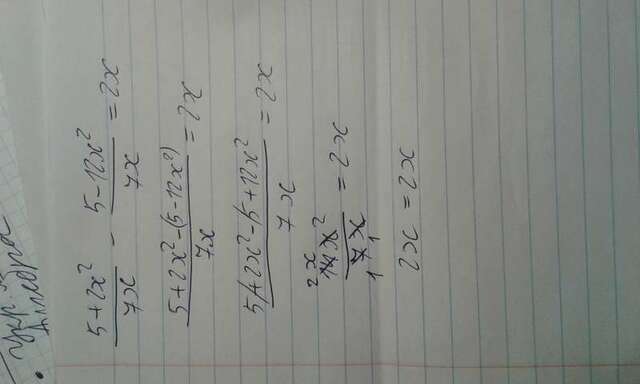 Укр.
Алгебра
(5+2x²)/(7x) - (5-12x²)/(7x) = 2x
(5+2x²-(5-12x²))/(7x) = 2x
(5+2x²-5+12x²)/(7x) = 2x
2 x
(14x²)/(7x) = 2x
1 1
2x = 2x